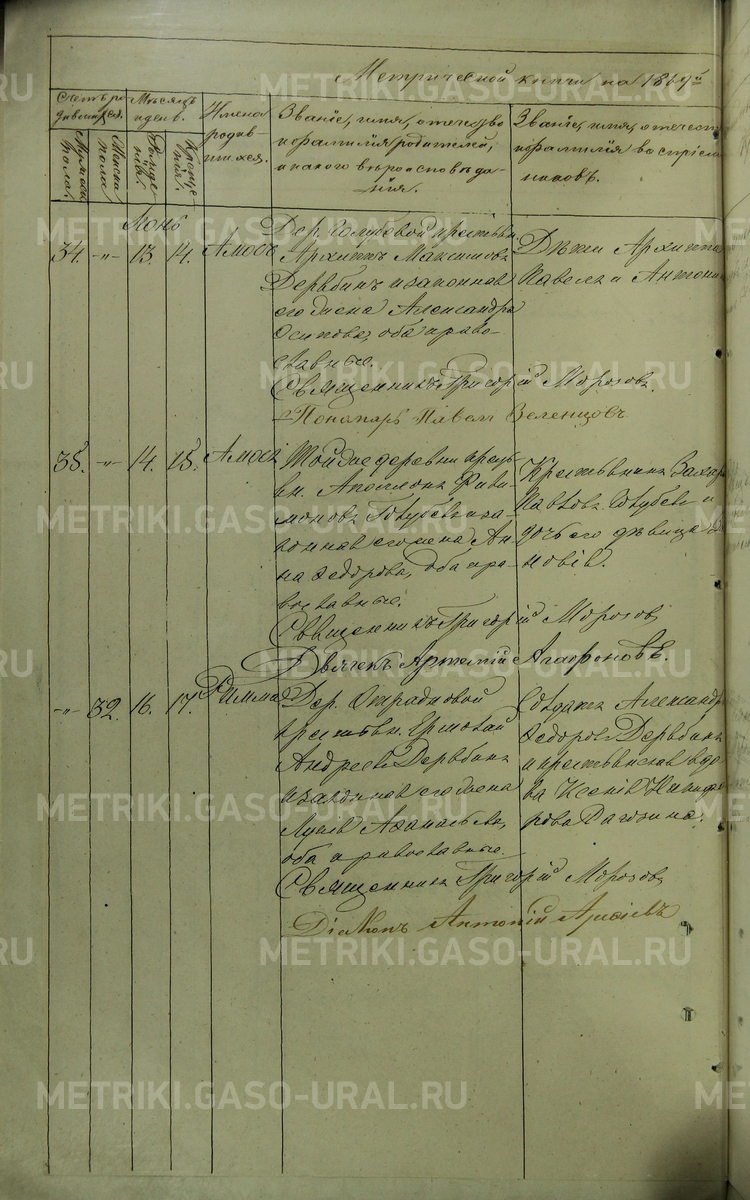 Метрической книги на 1869й
Счетъ ро
дившихся.
Мужеска
пола.
Женска
пола.
Мѣсяцъ
и день.
Рожде
нія.
Креще
нія.
Имена
родив
шихся.
Званіе, имя, отчество
и фамилія родителей,
и какого вѣроисповѣда
нія.
Званіе, имя, отчест
и фамилія воспріем
никовъ.
Іюнь
34. -"- 13. 14.
Амосъ
Дер. Голубовой крестьян
Архиппъ Максимовъ
Дерябинъ и законная
его жена Александра
Осипова, оба право-
славные.
Священникъ Григорій Морозовъ
Пономарь Павелъ Зеленцовъ
Дѣти Архиппа
Павелъ и Антони
35. -"- 14. 15.
Амосъ
Той же деревни кресть
ян. Аполлонъ Фили
моновъ Голубевъ и за
конная его жена Ан
на Федорова, оба пра-
вославные.
Священникъ Григорій Морозовъ
Дьячекъ Артемій Агафоновъ.
Крестьянинъ Захаръ
Павловъ Голубевъ и
дочь его дѣвица
новія.
-"- 32. 16. 17.
Римма
Дер. Отрадновой
крестьян. Ермолай
Андреевъ Дерябинъ
и законная его жена
Лукія Афанасьева,
оба православные.
Священникъ Григорій Морозовъ
Діаконъ Антоній
Солдатъ Александръ
Федоровъ Дерябинъ
и крестьянская вдо
ва Ксенія Никифо
рова
METRIKI.GASO-URAL.RU